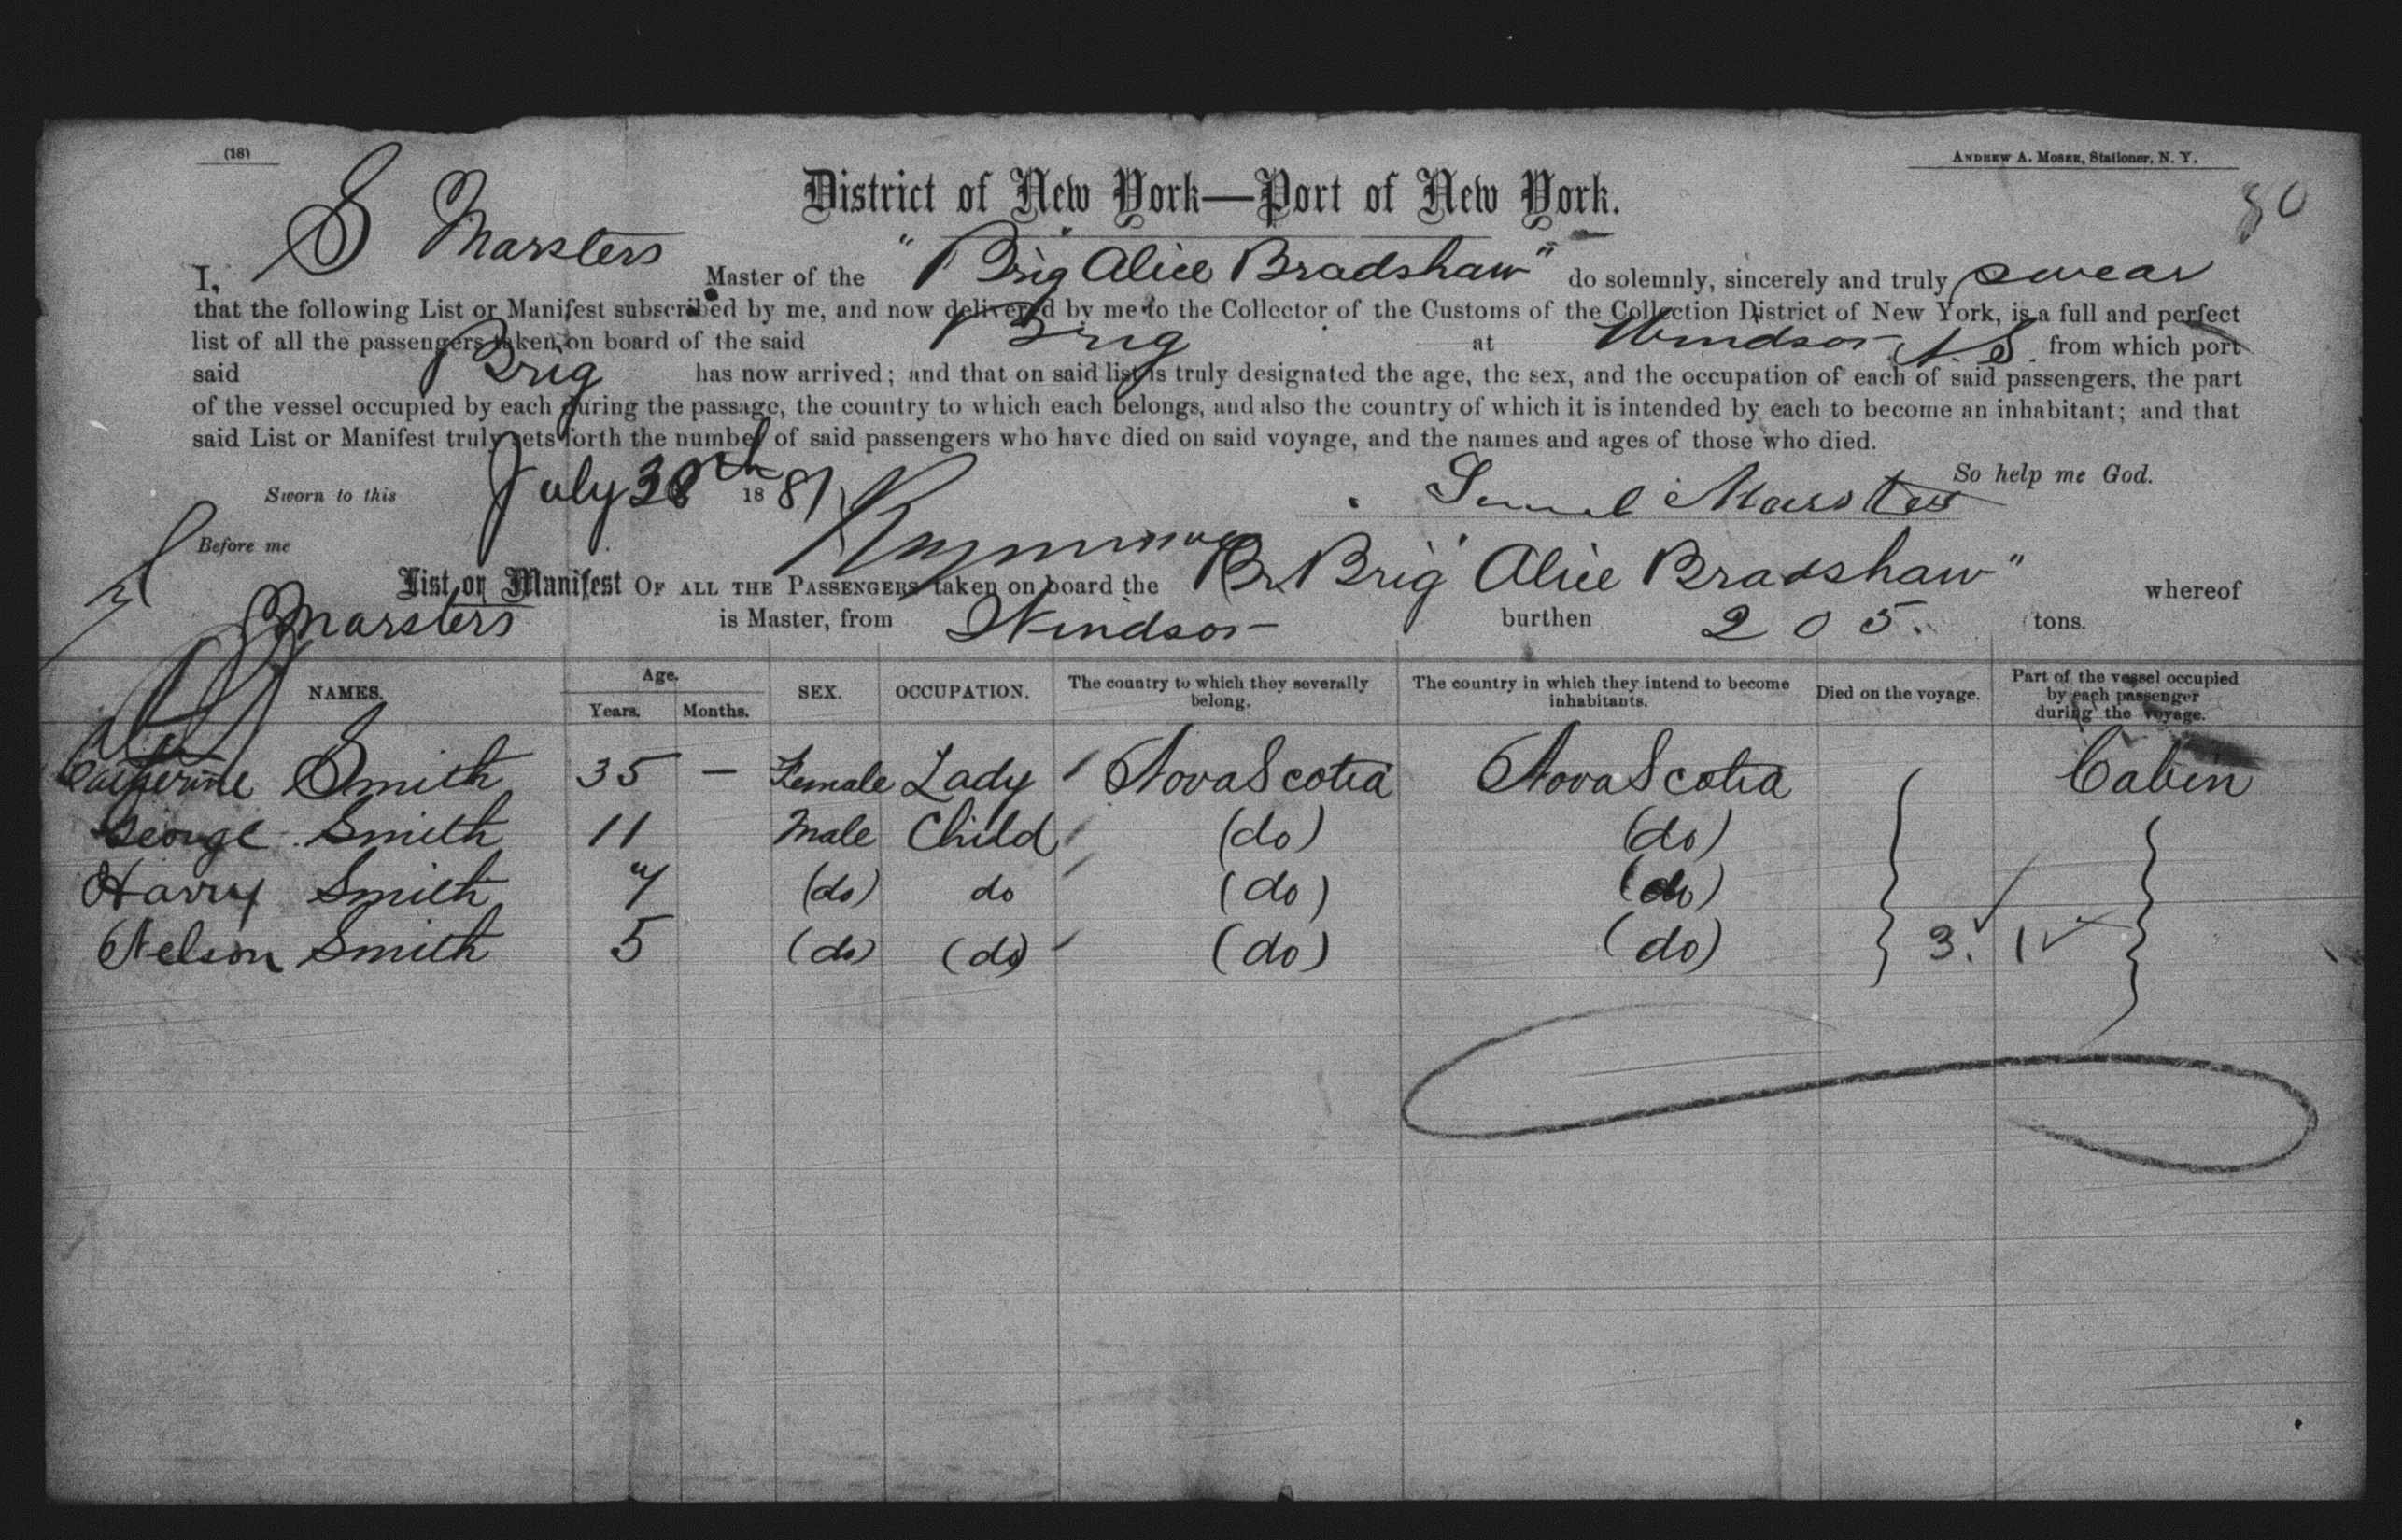 (18)
ANDREW A. MOSER, Stationer, N. Y.
80
District of New York—Port of New York.
I, S Marsters Master of the "Brig Alice Bradshaw" do solemnly, sincerely and truly swear
that the following List or Manifest subscribed by me, and now delivered by me to the Collector of the Customs of the Collection District of New York, is a full and perfect
list of all the passengers taken on board of the said Brig at Windsor N.S. from which port
said Brig has now arrived; and that on said list is truly designated the age, the sex, and the occupation of each of said passengers, the part
of the vessel occupied by each during the passage, the country to which each belongs, and also the country of which it is intended by each to become an inhabitant; and that
said List or Manifest truly sets forth the number of said passengers who have died on said voyage, and the names and ages of those who died.
So help me God.
Sworn to this July 30th 1881 Marsters
Before me
List or Manifest OF ALL THE PASSENGERS taken on board the Br. Brig "Alice Bradshaw" whereof
Marsters is Master, from Windsor burthen 205. tons.
NAMES. Age. Years. Months. SEX. OCCUPATION. The country to which they severally belong. The country in which they intend to become inhabitants. Died on the voyage. Part of the vessel occupied by each passenger during the voyage.
Catherine Smith 35 – Female Lady / Nova Scotia Nova Scotia Cabin
George Smith 11 Male Child / (do) (do)
Harry Smith 7 (do) do / (do) (do)
Nelson Smith 5 (do) (do) / (do) (do) 3. ✓ 1 ✓